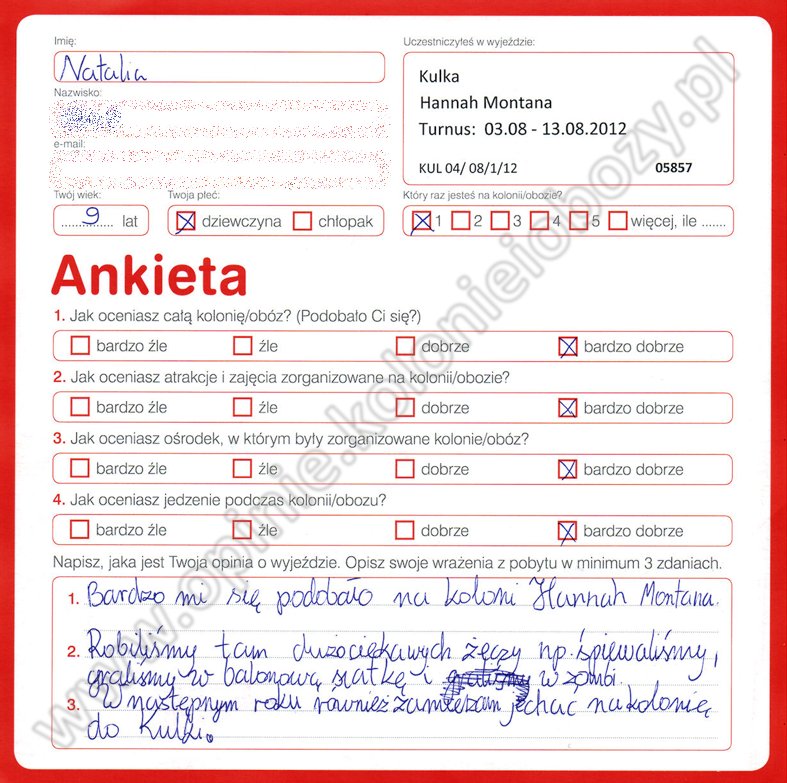 Imię:
Natalia
Uczestniczyłeś w wyjeździe:
Kulka
Hannah Montana
Turnus: 03.08 - 13.08.2012
KUL 04/ 08/1/12 05857
Nazwisko:
e-mail:
Twój wiek:
9 lat
Twoja płeć:
dziewczyna chłopak
Który raz jesteś na kolonii/obozie?
1 2 3 4 5 więcej, ile .......
Ankieta
1. Jak oceniasz całą kolonię/obóz? (Podobało Ci się?)
bardzo źle źle dobrze bardzo dobrze
2. Jak oceniasz atrakcje i zajęcia zorganizowane na kolonii/obozie?
bardzo źle źle dobrze bardzo dobrze
3. Jak oceniasz ośrodek, w którym były zorganizowane kolonie/obóz?
bardzo źle źle dobrze bardzo dobrze
4. Jak oceniasz jedzenie podczas kolonii/obozu?
bardzo źle źle dobrze bardzo dobrze
Napisz, jaka jest Twoja opinia o wyjeździe. Opisz swoje wrażenia z pobytu w minimum 3 zdaniach.
1. Bardzo mi się podobało na koloni Hannah Montana.
2. Robiliśmy tam dużo ciękawych żęczy np. śpiewaliśmy,
graliśmy w balonową siatkę i w zombi.
3. W następnym roku również zamieżam jechać na kolonię
do Kulki.
www.opinie.kolonieiobozy.pl